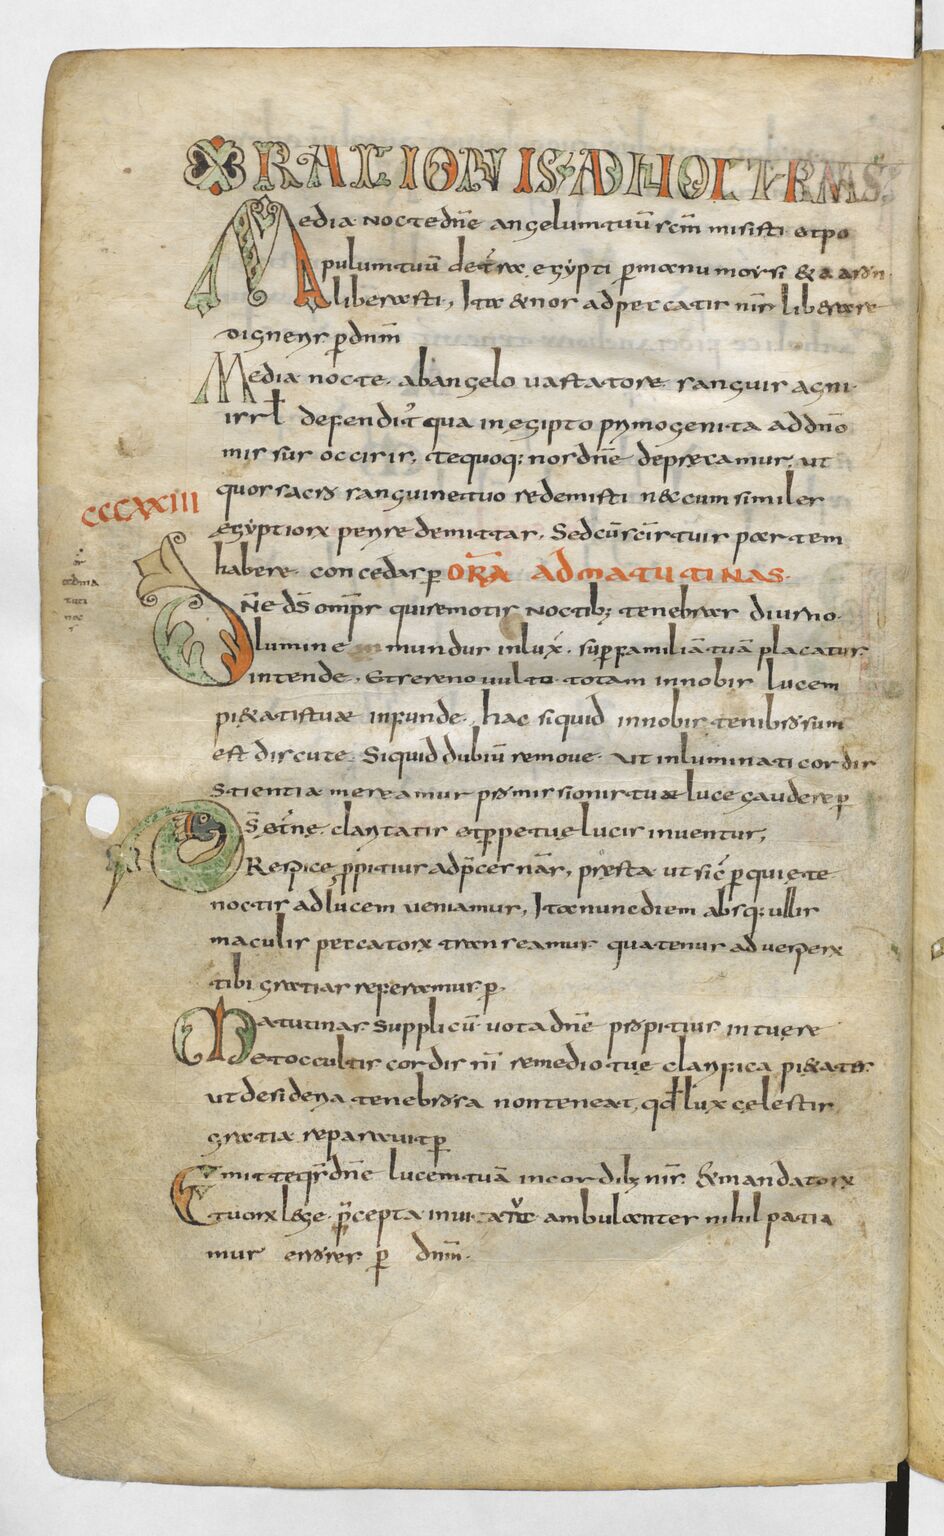 ORATIONIS AD NOCTURNAS
Media nocte dn̄e angelum tuū scm̄ misisti et po
pulum tuū de terrae egypti p̄ manu moysi & aaron
liberasti, Ita & nos ad peccatis nr̄is liberare
digneris p̄ dnm̄
Media nocte ab angelo vastatore sanguis agni
isrl̄ defendit qua in egipto primogenita ad dn̄o
missus occisis, te quoq; nos dn̄e depraecamur, ut
quos sacro sanguine tuo redemisti nec cum similes
egyptiorum perire demittas. Sed cū sc̄is tuis partem
habere concedas p̄ ORA AD MATUTINAS
CCCXXIII
Dn̄e ds̄ omp̄s qui remotis noctib; tenebras diurno
lumine mundus inlux, sup̄ familiā tuā placatus
intende, et sereno vulto totam in nobis lucem
pietatis tuae infunde, hac siquid in nobis tenibrosum
est discute. Siquid dubiū remove. Ut inluminati cordis
stientia mereamur promissionis tuae luce gaudere p̄
Ds̄ aet̄ne claritatis et p̄petue lucis inventur,
Respice p̄pitius ad p̄ces nr̄as, praesta ut sic p̄ quiete
noctis ad lucem veniamur, Ita nunc diem absq; ullis
maculis peccatorum transeamus quatenus ad vespera
tibi gratias referamus p̄
Matutinas supplicū vota dn̄e propitius intuere
et occultis cordis nr̄i remedio tue clarifica pietatis
ut desideria tenebrosa non teneat, qđ lux celestis
gratia reparavit p̄
Emitte qs̄ dn̄e lucem tuā in cordib; nr̄is & mandatorum
tuorum lege p̄cepta in via ambulantes nihil patia
mur errores p̄ dnm̄